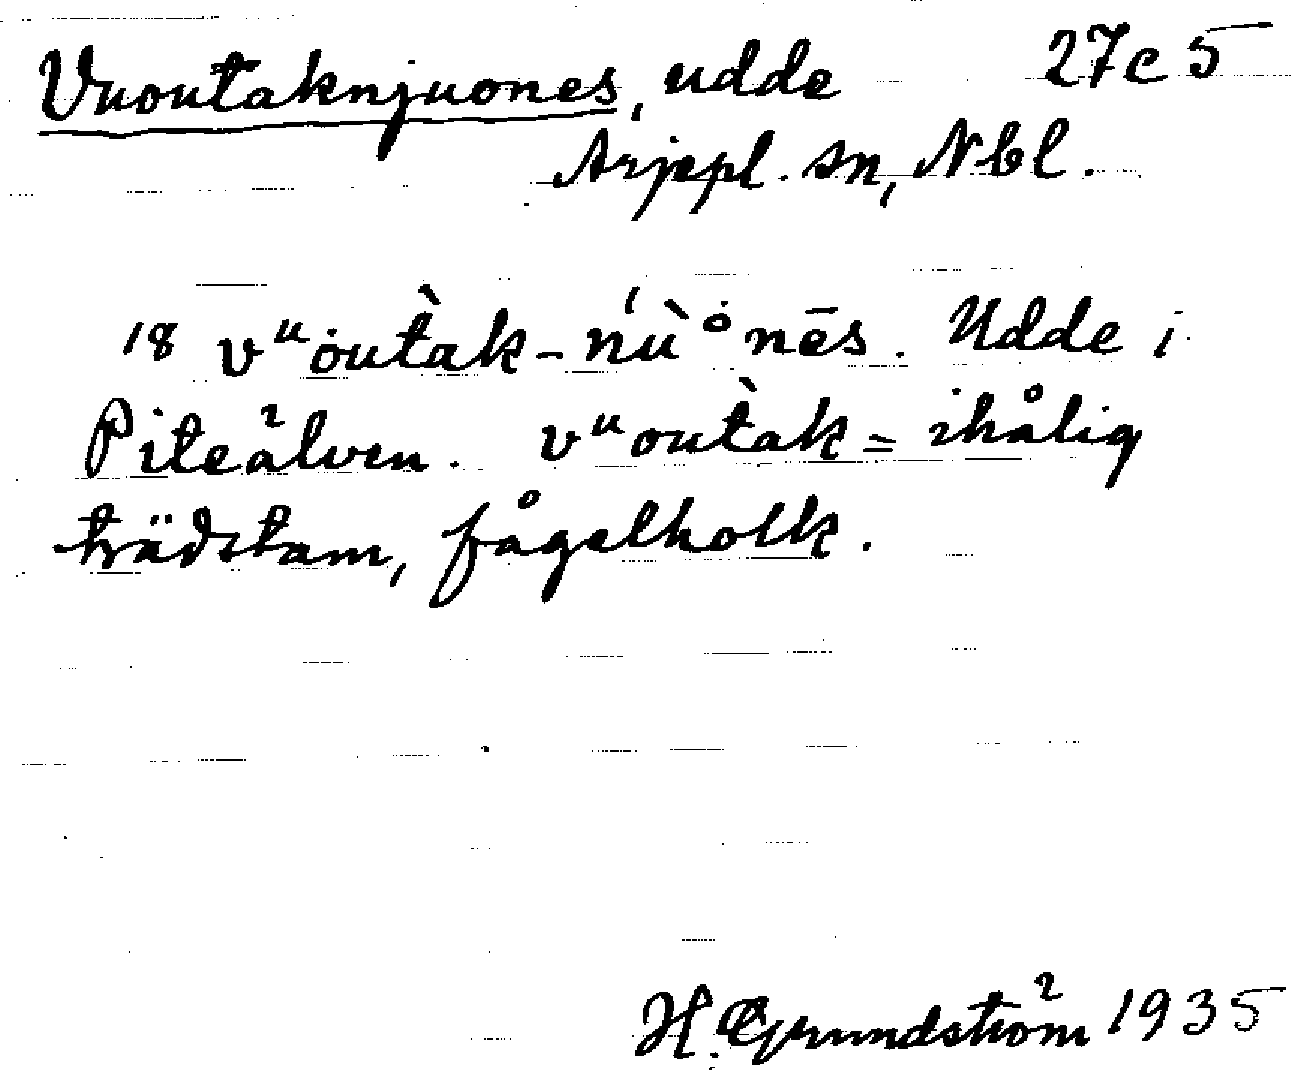 Vuoutaknjuones, udde 27c5
Arjepl. sn, Nbl.
18 vᵘȯut̀ak-ńù°nēs. Udde i
Piteälven. vᵘout̀ak = ihålig
trädstam, fågelholk.
H. Grundström 1935